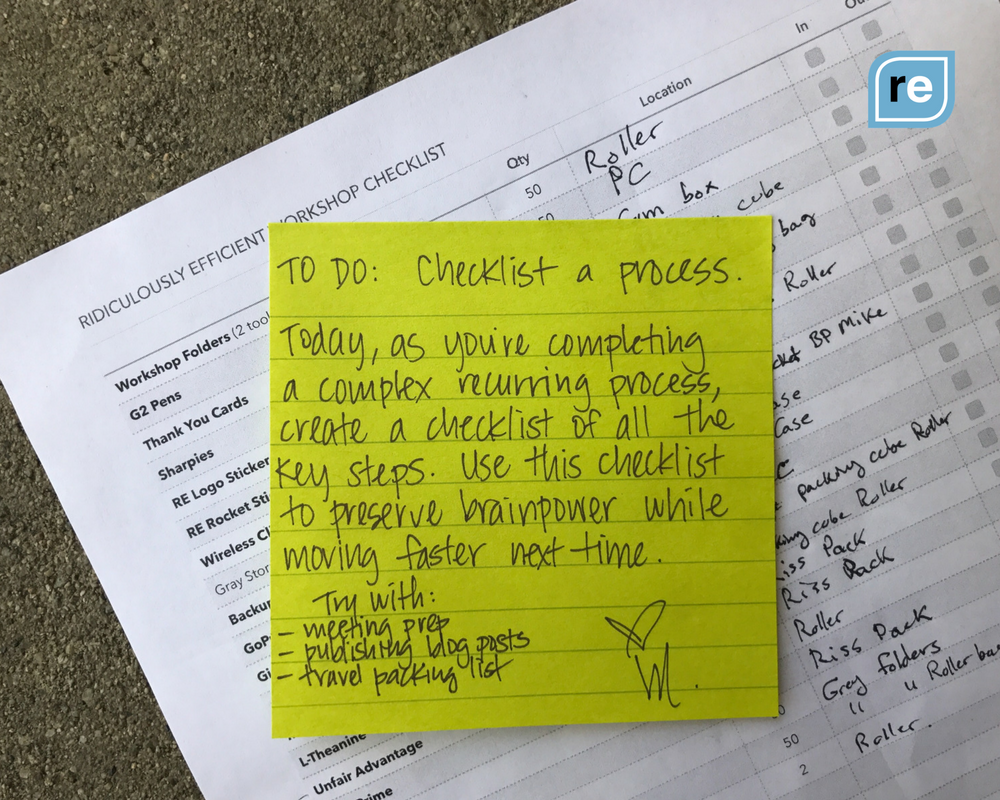 re
In
Location
Qty
RIDICULOUSLY EFFICIENT
ORKSHOP CHECKLIST
Workshop Folders (2
50
Roller
G2 Pens
PC
Thank You Cards
box
Sharpies
" cube
RE Logo
bag
RE Rocket
Roller
Wireless
BP Mike
Gray
Case
packing cube Roller
cube Roller
Riss Pack
Riss Pack
Roller
Riss Pack
Grey folders
" " Roller
L-Theanine
Unfair Advantage
50
Roller.
2
TO DO: Checklist a process.
Today, as you're completing
a complex recurring process,
create a checklist of all the
key steps. Use this checklist
to preserve brainpower while
moving faster next time.
Try with:
- meeting prep
- publishing blog posts
- travel packing list
M.